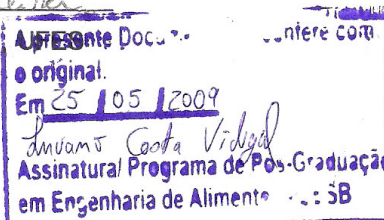 presente Doc confere com
o original.
Em 25 / 05 / 2009
Costa Vidigal
Assinatura/ Programa de Pós-Graduação
em Engenharia de Alimento